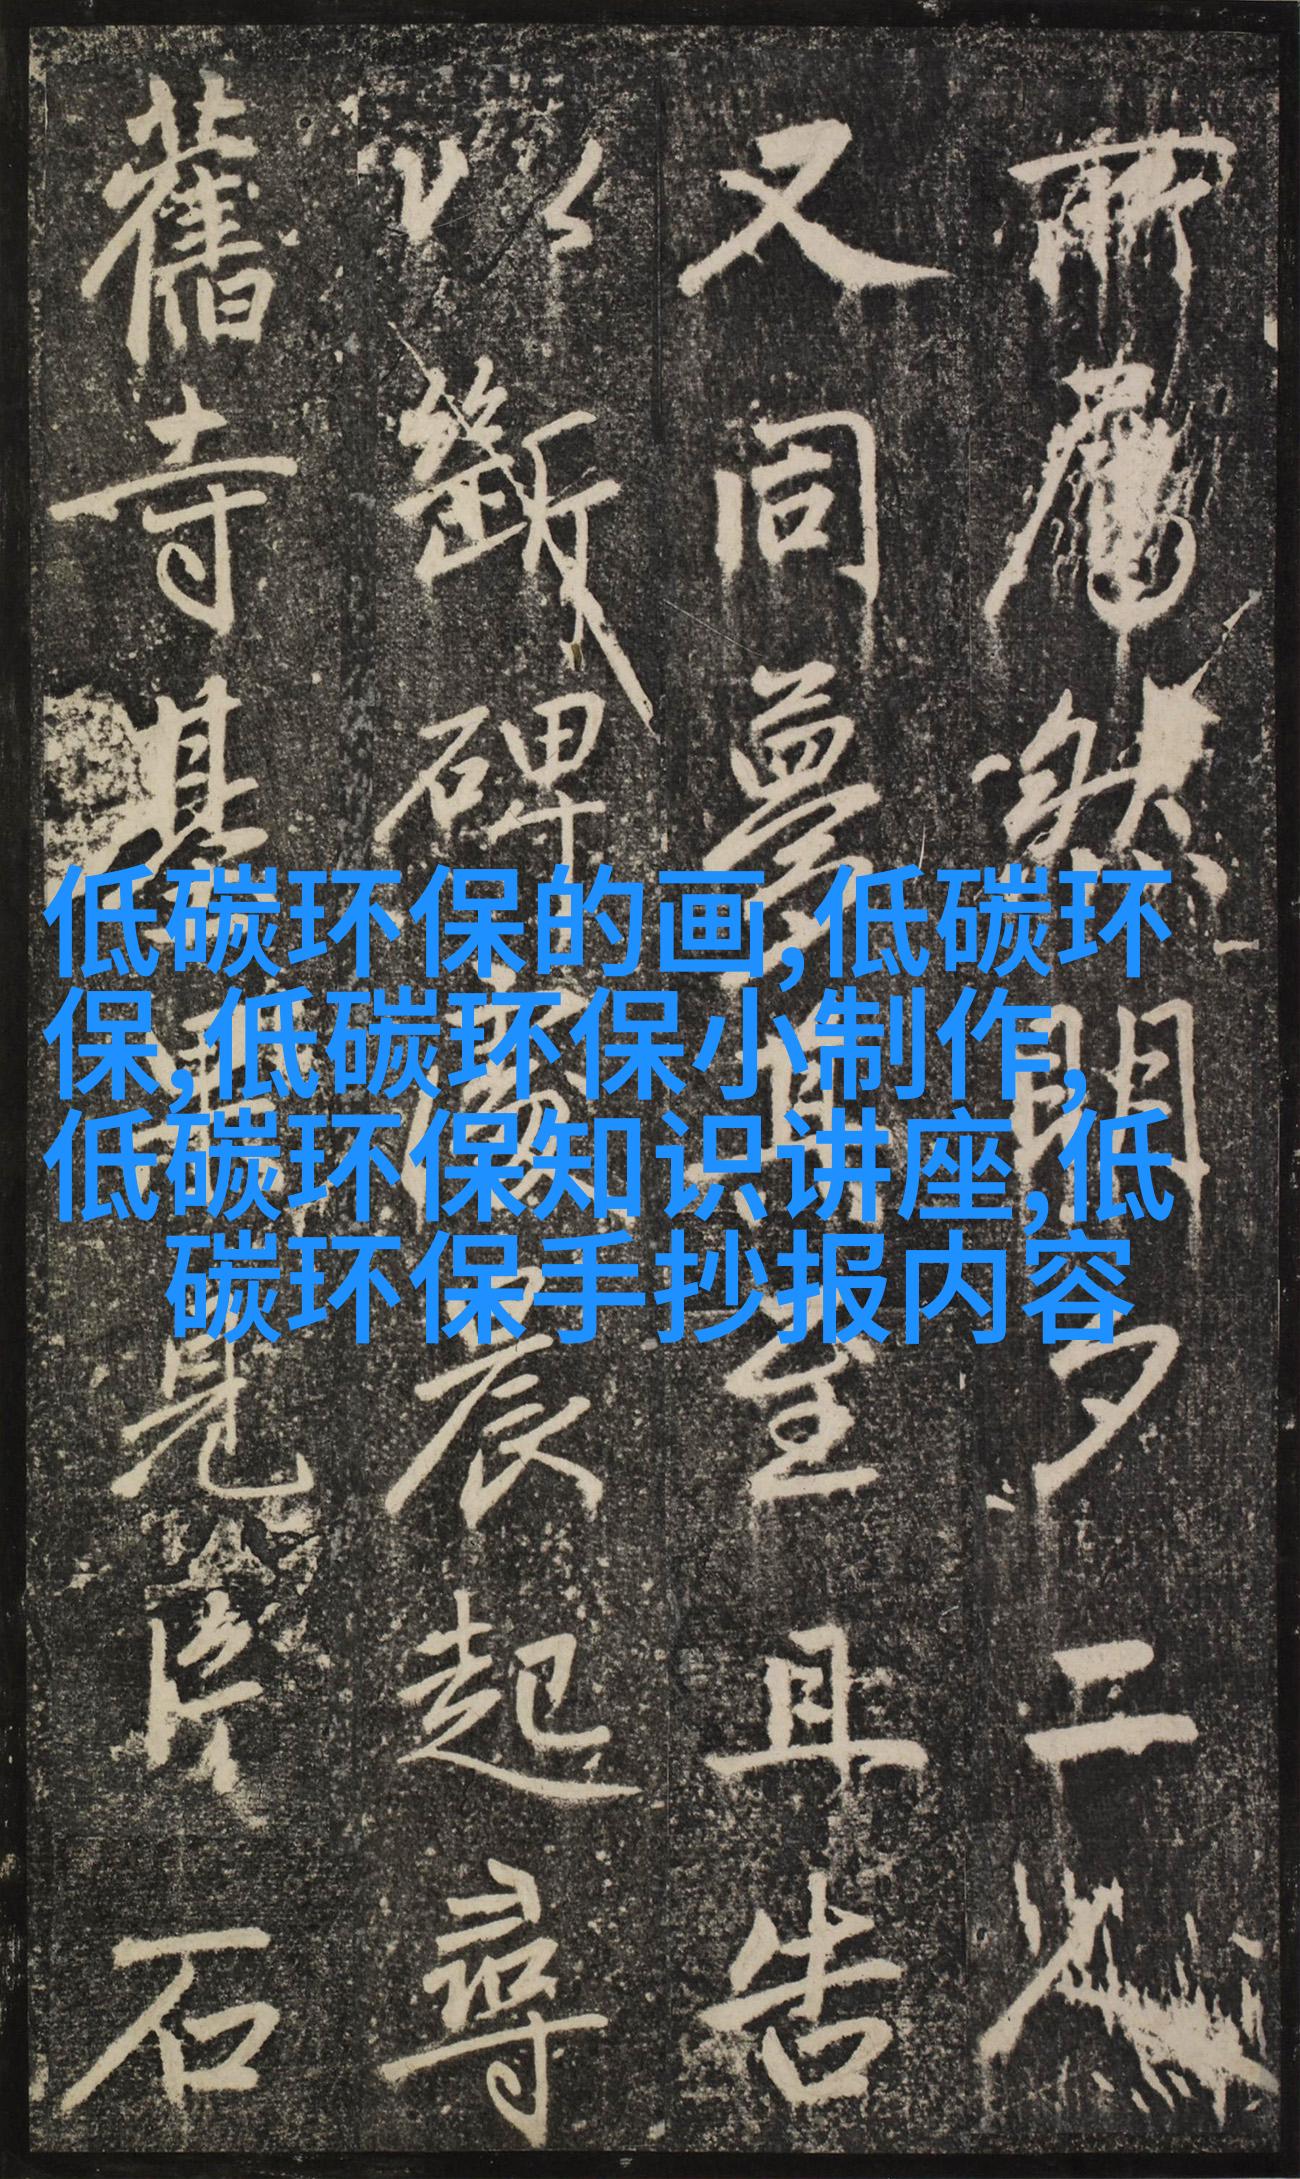 低碳环保的画,低碳环
保,低碳环保小制作,
低碳环保知识讲座,低
碳环保手抄报内容
然閒夕二
又同夢其至且告
以斷碑處辰起尋
舊寺基見石